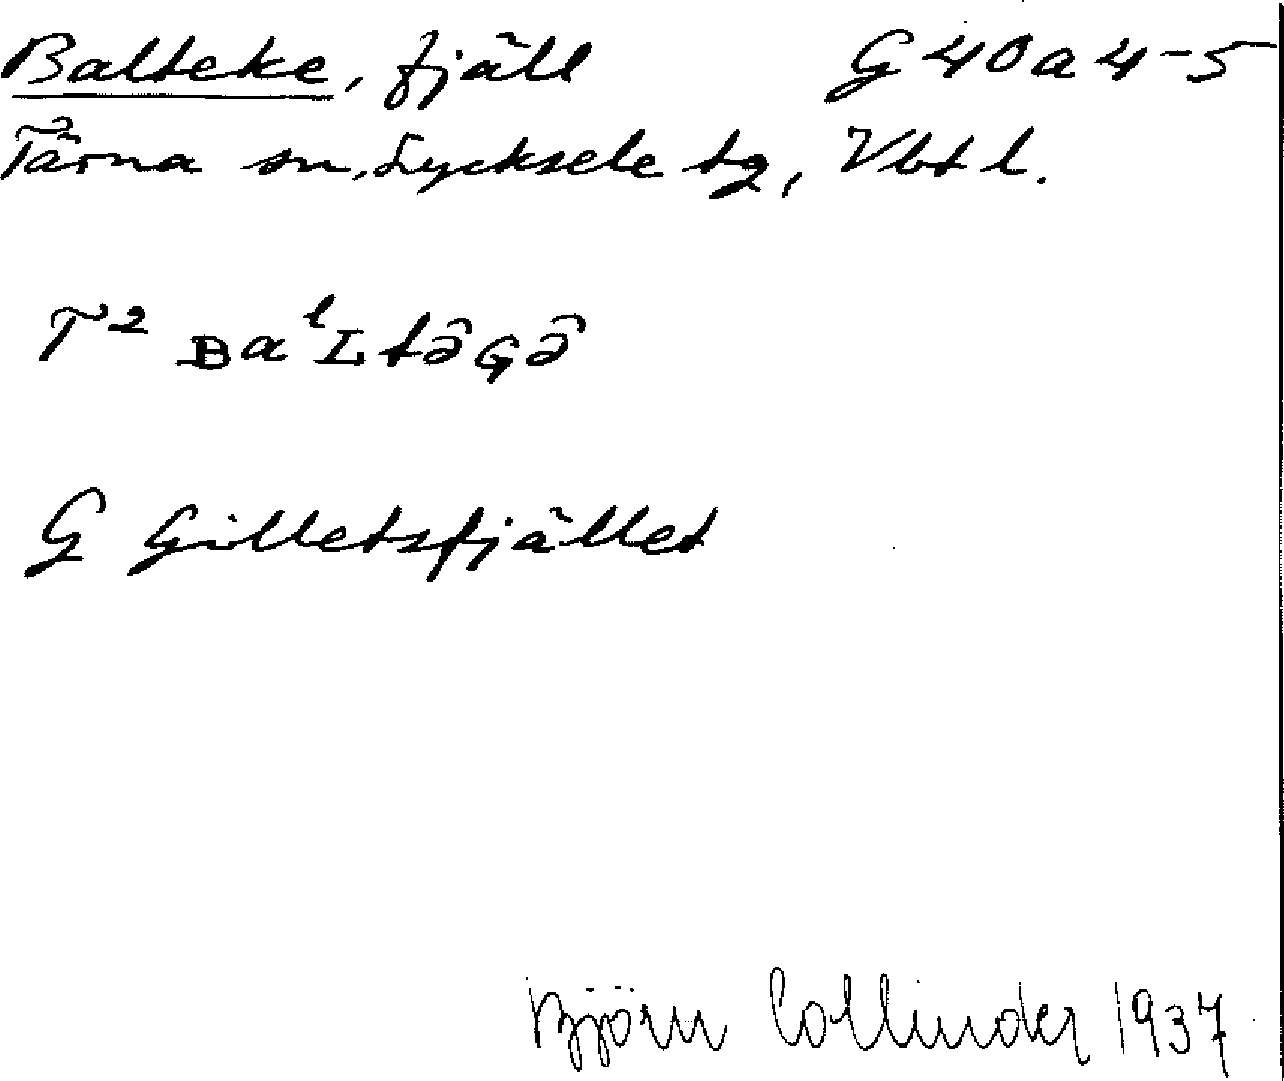 Balteke, fjäll G 40 a 4-5
Tärna sn, Lycksele tg, Vbt l.
T² ʙaˡʟtə̑ɢə̑
G Gilletsfjället
Björn Collinder 1937